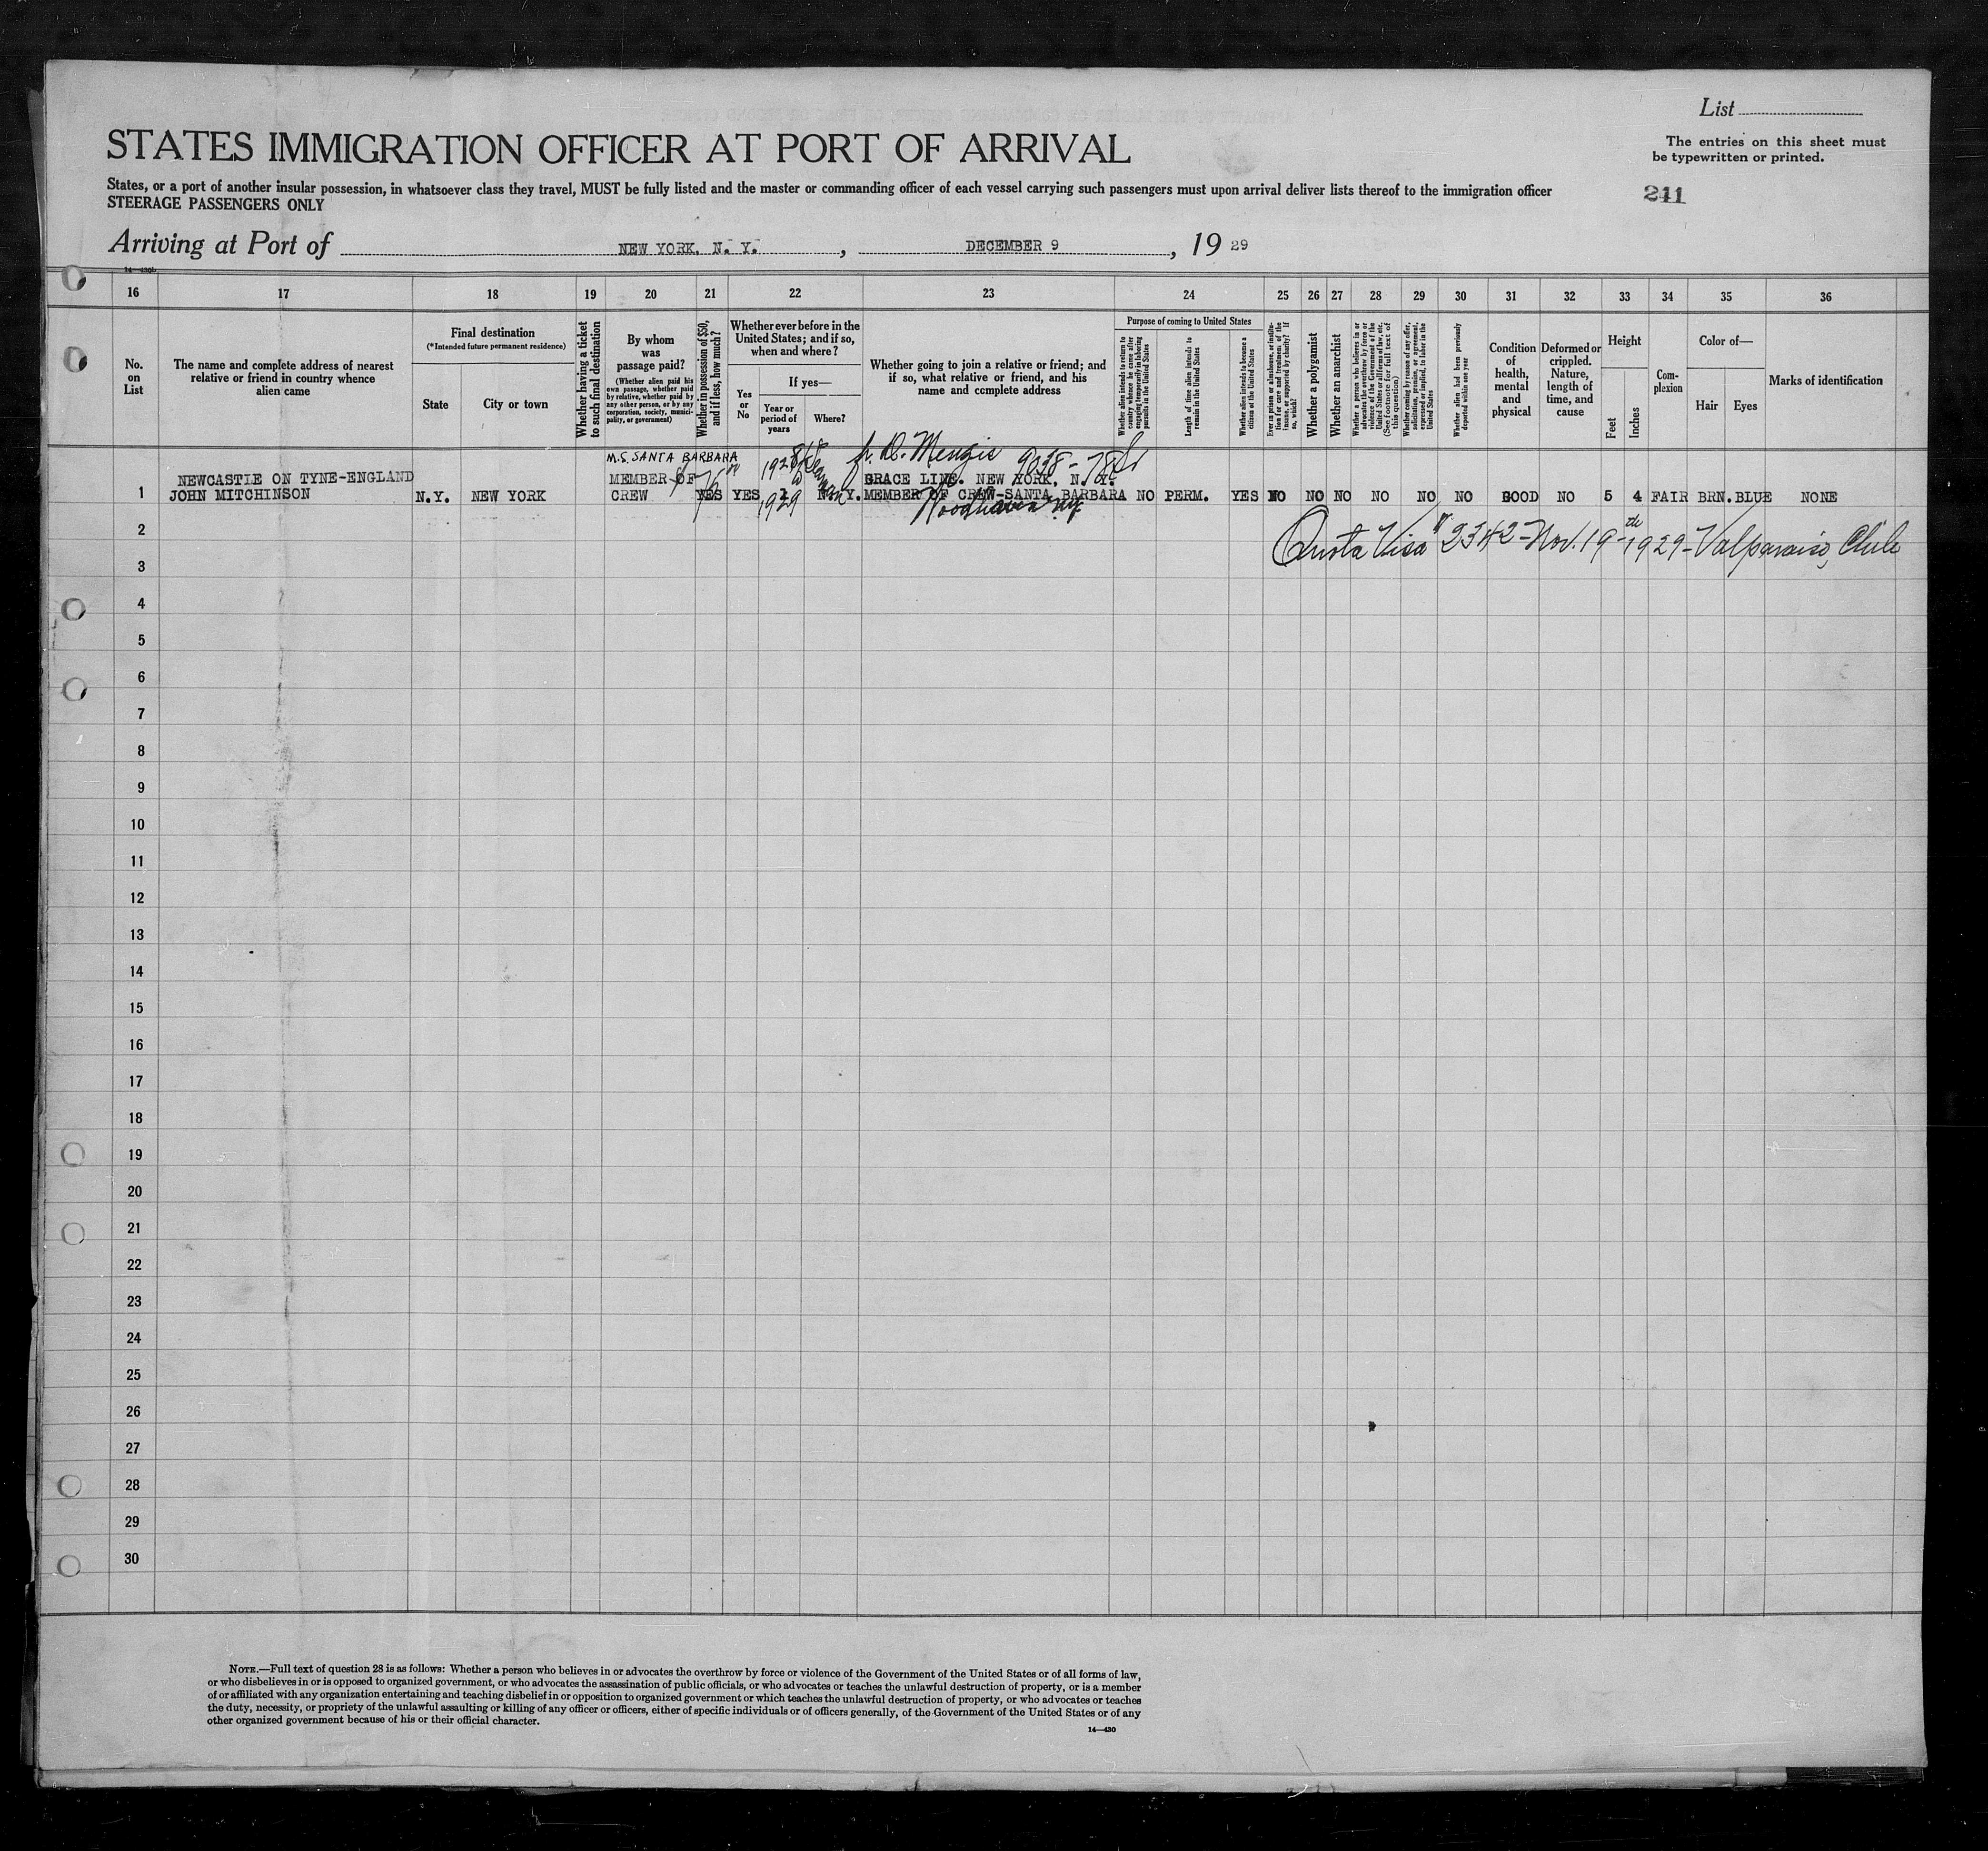 List
The entries on this sheet must
be typewritten or printed.
STATES IMMIGRATION OFFICER AT PORT OF ARRIVAL
States, or a port of another insular possession, in whatsoever class they travel, MUST be fully listed and the master or commanding officer of each vessel carrying such passengers must upon arrival deliver lists thereof to the immigration officer
STEERAGE PASSENGERS ONLY
241
Arriving at Port of NEW YORK, N. Y. , DECEMBER 9 , 19 29
16 17 18 19 20 21 22 23 24 25 26 27 28 29 30 31 32 33 34 35 36
No. on List
The name and complete address of nearest relative or friend in country whence alien came
Final destination
(*Intended future permanent residence)
State
City or town
Whether having a ticket to such final destination
By whom was passage paid?
(Whether alien paid his own passage, whether paid by relative, whether paid by any other person, or by any corporation, society, municipality, or government)
Whether in possession of $50, and if less, how much?
Whether ever before in the United States; and if so, when and where?
Yes or No
If yes—
Year or period of years
Where?
Whether going to join a relative or friend; and if so, what relative or friend, and his name and complete address
Purpose of coming to United States
Whether alien intends to return to country whence he came after engaging temporarily in laboring pursuits in the United States
Length of time alien intends to remain in the United States
Whether alien intends to become a citizen of the United States
Ever in prison or almshouse, or institution for care and treatment of the insane, or supported by charity? If so, which?
Whether a polygamist
Whether an anarchist
Whether a person who believes in or advocates the overthrow by force or violence of the Government of the United States or all forms of law, etc. (See footnote for full text of this question)
Whether coming by reason of any offer, solicitation, promise, or agreement, expressed or implied, to labor in the United States
Whether alien had been previously deported within one year
Condition of health, mental and physical
Deformed or crippled. Nature, length of time, and cause
Height
Feet
Inches
Complexion
Color of—
Hair
Eyes
Marks of identification
M.S. SANTA BARBARA
NEWCASTLE ON TYNE-ENGLAND MEMBER OF 1928 GRACE LINE. NEW YORK. N. Y. 9038-78 St
1 JOHN MITCHINSON N.Y. NEW YORK CREW YES YES 1929 N.Y. MEMBER OF CREW-SANTA BARBARA NO PERM. YES NO NO NO NO NO NO GOOD NO 5 4 FAIR BRN. BLUE NONE
Woodhaven N.Y.
2
Quota Visa # 2342-Nov. 19th-1929-Valparaiso, Chile
3
4
5
6
7
8
9
10
11
12
13
14
15
16
17
18
19
20
21
22
23
24
25
26
27
28
29
30
NOTE.—Full text of question 28 is as follows: Whether a person who believes in or advocates the overthrow by force or violence of the Government of the United States or of all forms of law,
or who disbelieves in or is opposed to organized government, or who advocates the assassination of public officials, or who advocates or teaches the unlawful destruction of property, or is a member
of or affiliated with any organization entertaining and teaching disbelief in or opposition to organized government or which teaches the unlawful destruction of property, or who advocates or teaches
the duty, necessity, or propriety of the unlawful assaulting or killing of any officer or officers, either of specific individuals or of officers generally, of the Government of the United States or of any
other organized government because of his or their official character.
14—430